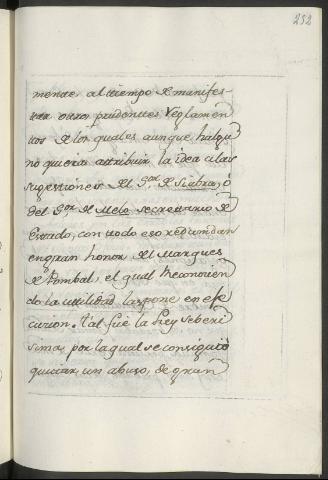 252
mente, al tiempo de manifes-
trar otros prudentes Reglamen
tos de los quales aunque halgu
no quiera attribuir la idea a las
sugestiones del S.or de Siabra, ó
del S.or de Melo secrettario de
Estado, con ttodo eso redundan
en gran honor del Marques
de Pombal, el qual reconocien
do la uttilidad las pone en efe
cucion. tal fue la Ley seberi
sima, por la qual se consiguió
quittar, un abuso, de gran